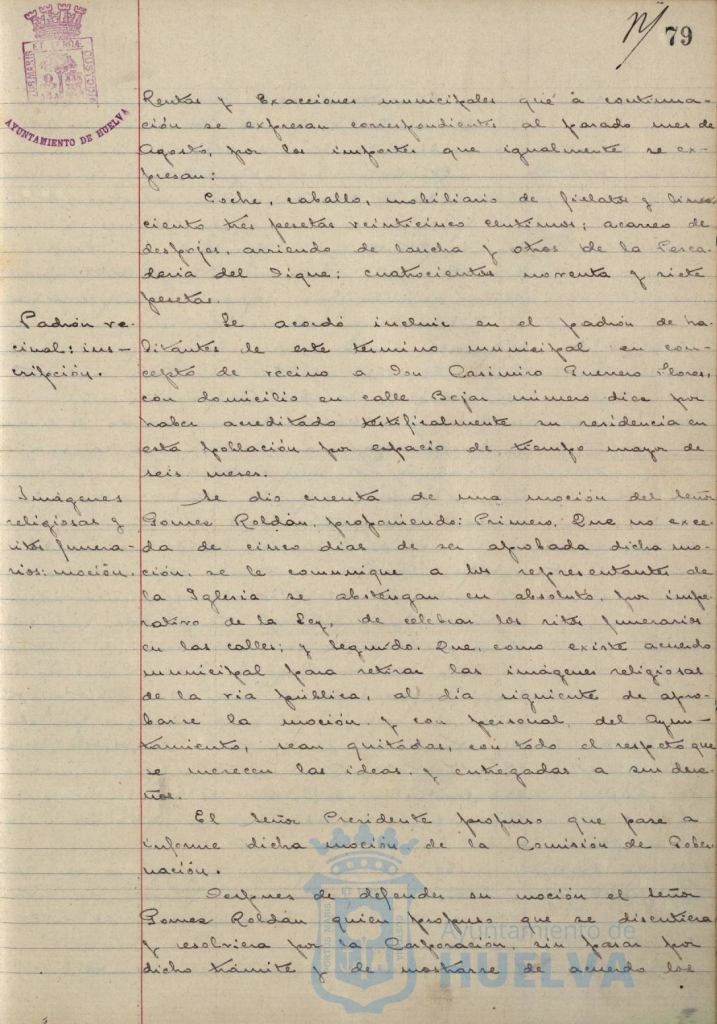 79
AYUNTAMIENTO DE HUELVA
Rentas y Exacciones municipales que á continua-
ción se expresan correspondientes al pasado mes de
Agosto, por los importes que igualmente se ex-
presan:
Coche, caballo, mobiliario de fielatos y
ciento tres pesetas veinticinco centimos; acarreo de
despojos, arriendo de lancha y otros de la Pesca-
deria del Dique: cuatrocientas noventa y siete
pesetas.
Padrón ve-
cinal: ins-
cripción.
Se acordó incluir en el padrón de ha-
bitantes de este termino municipal en con-
cepto de vecino a Don Casimiro Guerrero Flores,
con domicilio en calle Bejar número diez por
haber acreditado testificalmente su residencia en
esta población por espacio de tiempo mayor de
seis meses.
Imágenes
religiosas y
ritos funera-
rios: moción.
Se dio cuenta de una moción del Señor
Gomez Roldán, proponiendo: Primero. Que no exce-
da de cinco dias de ser aprobada dicha mo-
ción, se le comunique a los representantes de
la Iglesia se abstengan en absoluto, por impe-
rativo de la Ley, de celebrar los ritos funerarios
en las calles; y Segundo. Que, como existe acuerdo
municipal para retirar las imágenes religiosas
de la via pública, al día siguiente de apro-
barse la moción y con personal del Ayun-
tamiento, sean quitadas, con todo el respeto que
se merecen las ideas, y entregadas a sus due-
ños.
El Señor Presidente propuso que pase a
informe dicha moción de la Comisión de Gober-
nación.
Despues de defender su moción el Señor
Gomez Roldán quien propuso que se discutiera
y resolviera por la Corporación, sin pasar por
dicho trámite y de mostrarse de acuerdo los
Ayuntamiento de
HUELVA